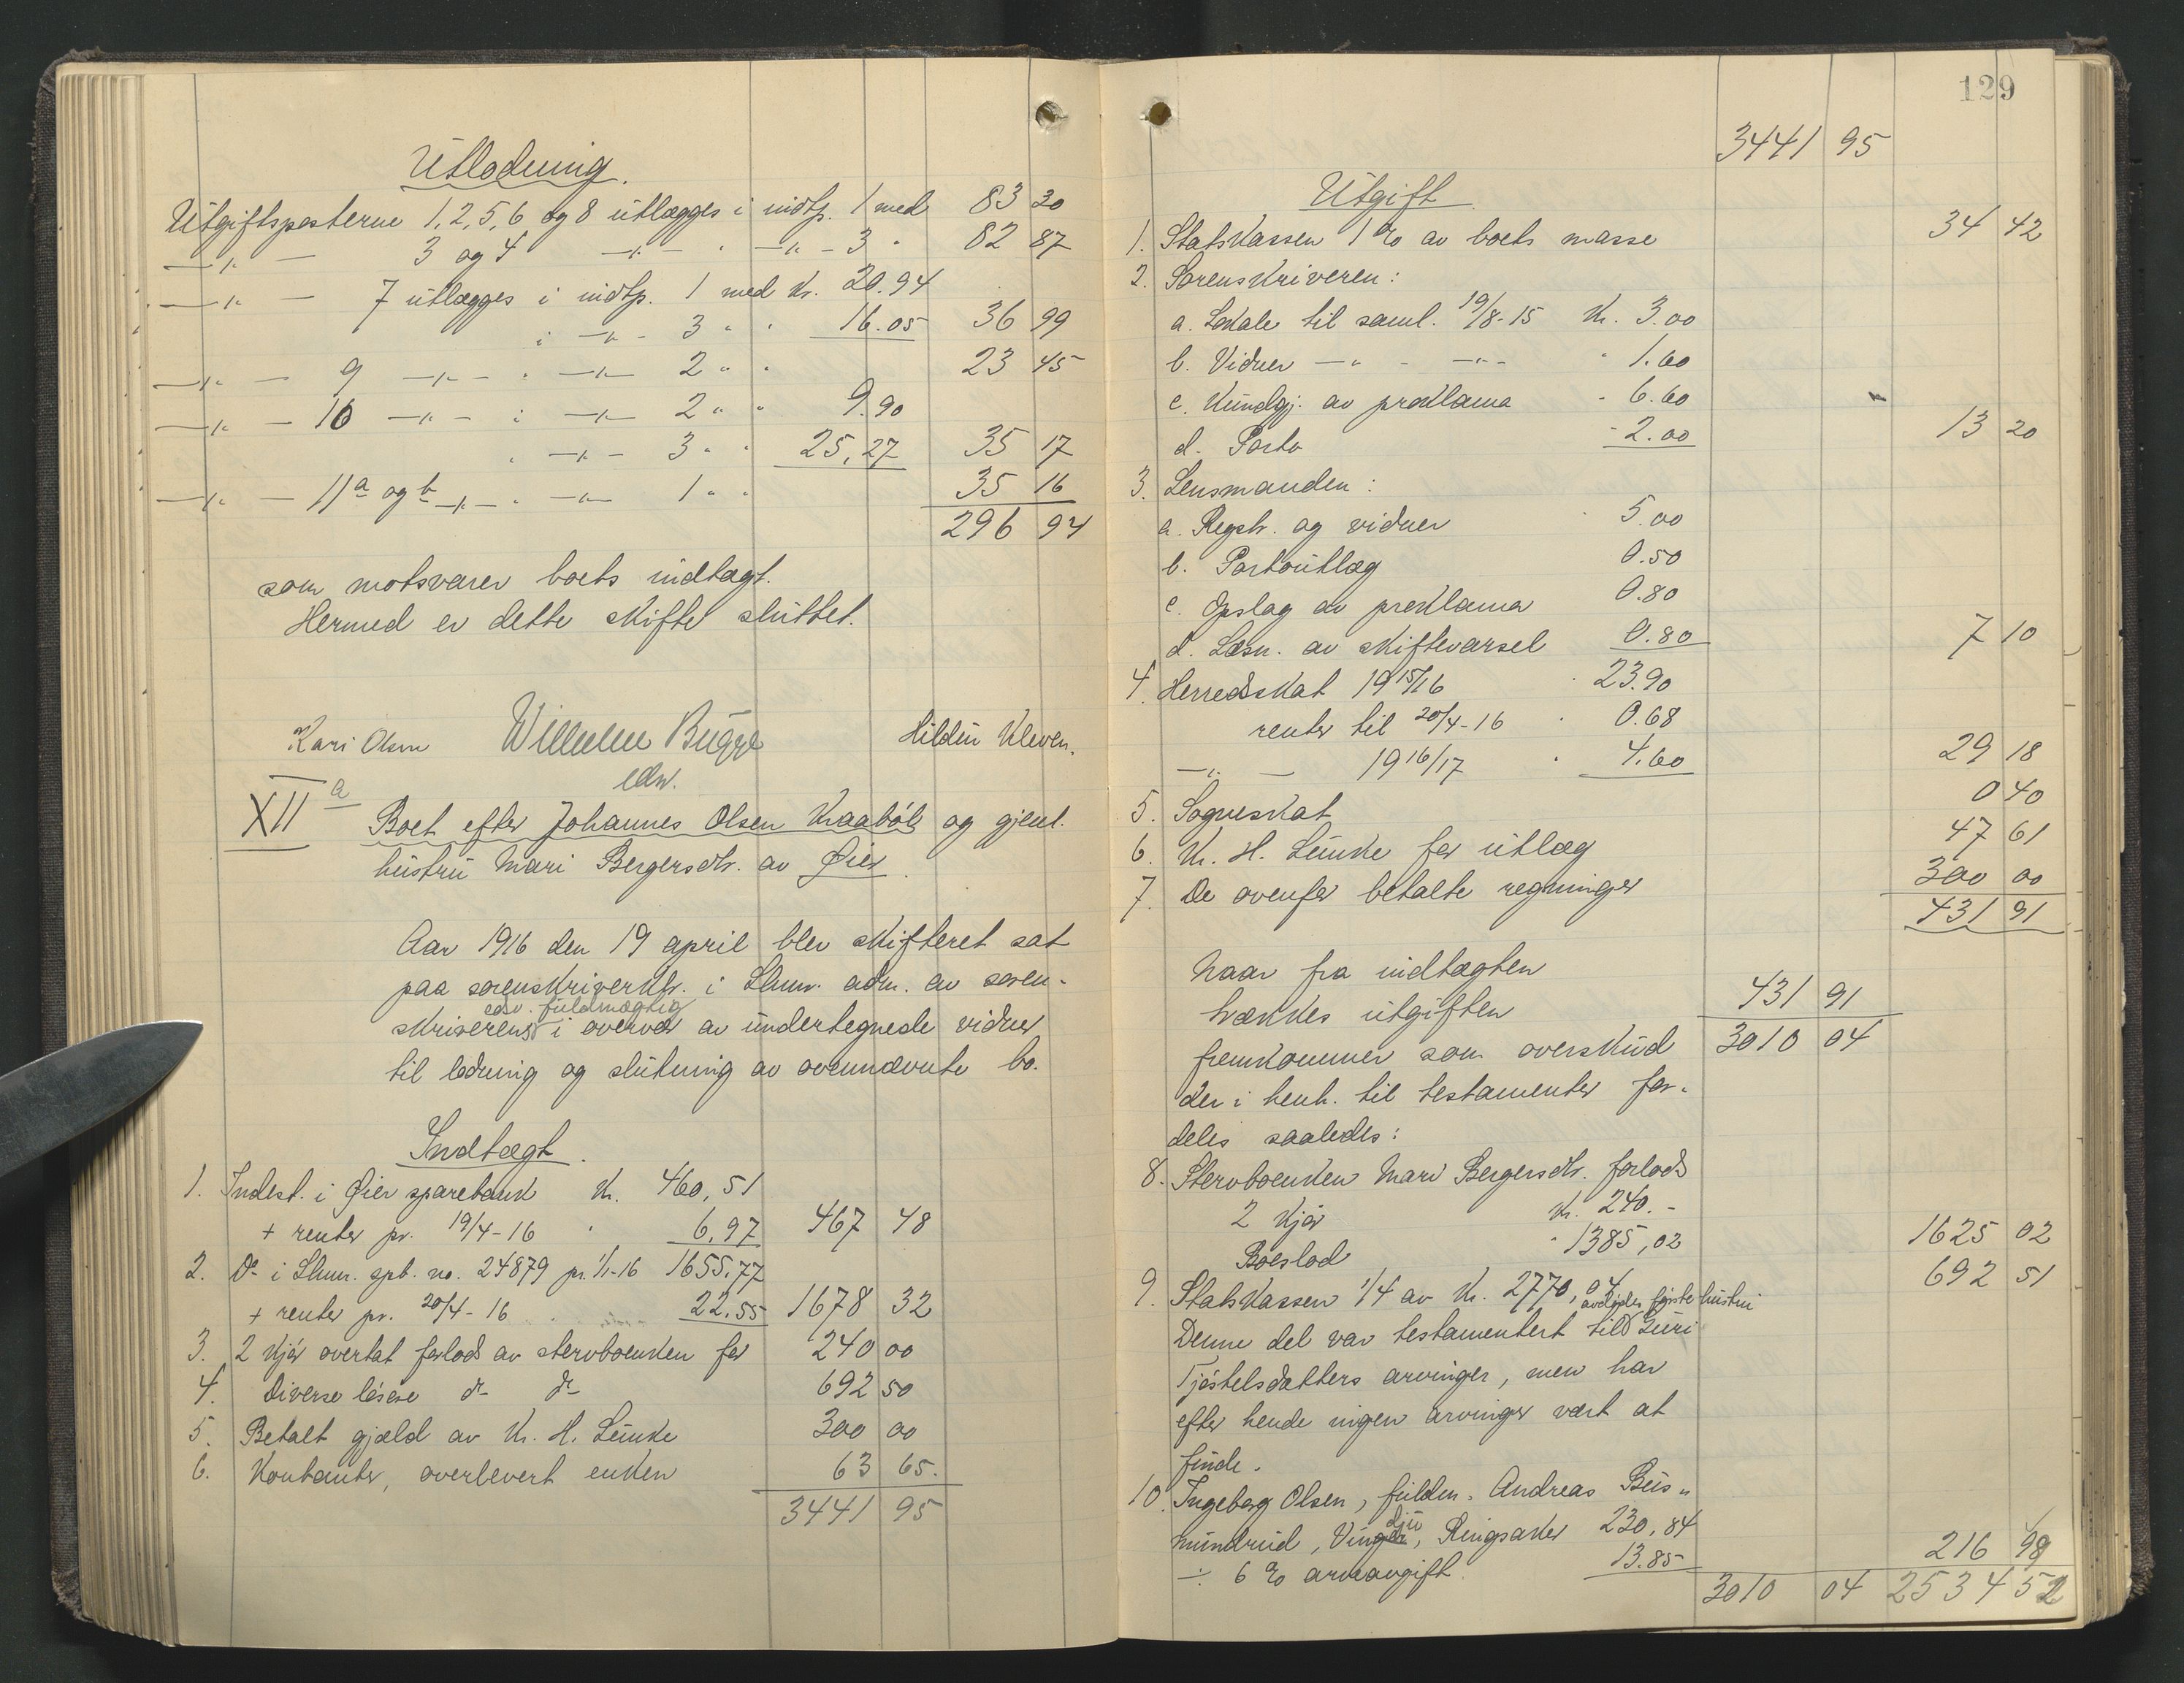 Utlodning.
Utgiftsposterne 1, 2, 5, 6 og 8 utlægges i indtp. 1 med 83 30
—"— 3 og 4 —"— " —"— 3 " 82 87
—"— 7 utlægges i indtp. 1 med Kr. 20.94
i —"— 3 " " 16.05 36 99
—"— 9 —"— " —"— 2 " " 23 45
—"— 10 —"— i —"— 2 " " 9.90
" —"— 3 " " 25,27 35 17
—"— 11a og b —"— " —"— 1 " " 35 16
296 94
som motsvarer boets indtægt.
Hermed er dette skifte sluttet.
Kari Olsen Wilhelm Bugge Hildur Kleven.
edsv.
XII a Boet efter Johannes Olsen Kraabøl og gjenl.
hustru Mari Bergersdtr. av Øier.
Aar 1916 den 19 april blev skifteret sat
paa sorenskriverktr. i Lhmr. adm. av soren-
edsv. fuldmægtig
skriverens i overvær av undertegnede vidner
til lodning og slutning av ovennævnte bo.
Indtægt.
1. Indest. i Øier sparebank Kr. 460,51
+ renter pr. 19/4-16 " 6,97 467 48
2. Do i Lhmr. spb. no. 24879 pr. 1/1-16 1655,77
+ renter pr. 20/4-16 " 22.55 1678 32
3. 2 kjør overtat forlods av stervboenken for 240 00
4. Diverse løsøre do do 692 50
5. Betalt gjæld av Kr. H. Lunke 300 00
6. Kontanter, overlevert enken 63 65.
3441 95
129
3441 95
Utgift.
1. Statskassen 1 % av boets masse 34 42
2. Sorenskriveren:
a. Lokale til saml. 19/8-15 Kr. 3.00
b. Vidner —"— —"— " 1.60
c. Kundgj. av proklama " 6.60
d. Porto - 2.00 13 20
3. Lensmanden:
a. Registr. og vidner " 5.00
b. Portoutlæg 0.50
c. Opslag av proklama 0.80
d. Læsn. av skiftevarsel 0.80 7 10
4. Herredsskat 1915/16 " 23.90
renter til 20/4-16 " 0.68
—"— 1916/17 " 4.60 29 18
5. Sogneskat 0 40
6. Kr. H. Lunke for utlæg 47 61
7. De ovenfor betalte regninger 300 00
431 91
Naar fra indtægten
trækkes utgiften 431 91
fremkommer som overskud 3010 04
der i henh. til testamenter for-
deles saaledes:
8. Stervboenken Mari Bergersdtr. forlods
2 kjør Kr. 240.-
Boeslod " 1385,02 1625 02
9. Statskassen 1/4 av Kr. 2770,04 692 51
avdødes første hustru
Denne del var testamentert til Guri
Tjøstelsdatters arvinger, men har
efter hende ingen arvinger vært at
finde.
10. Ingeborg Olsen, fuldm. Andreas Bus-
mundrud, Ving, Ringsaker 230,84
÷ 6 % arveavgift. 13.85 216 99
3010 04 2534 52